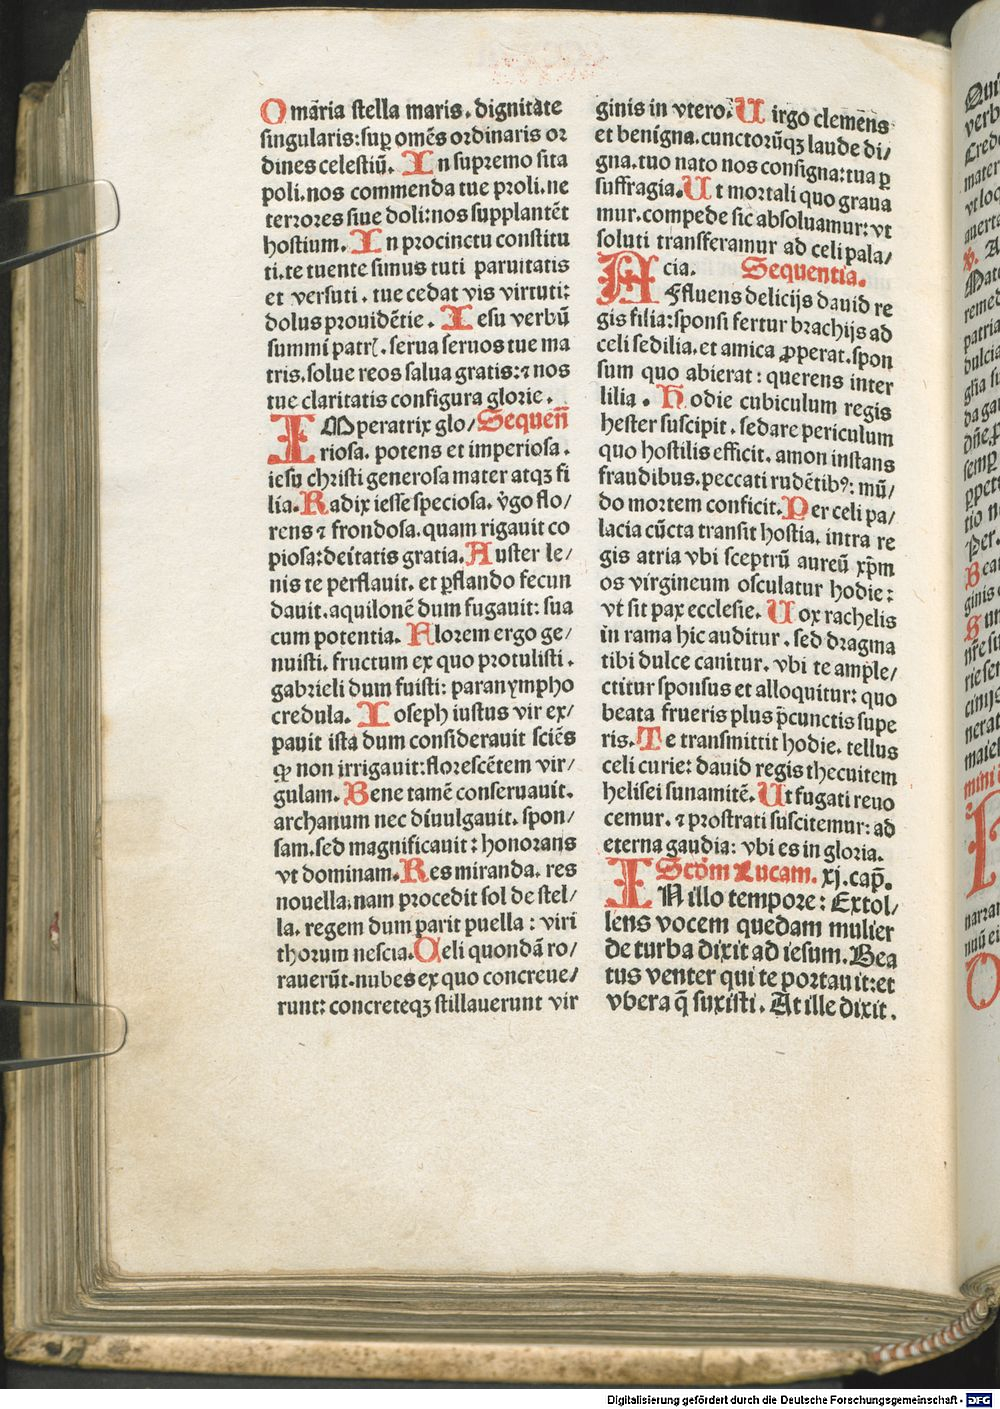 O maria stella maris. dignitate
singularis: suꝑ omẽs ordinaris or
dines celestiũ. In supremo sita
poli. nos commenda tue proli. ne
terrores siue doli: nos supplantẽt
hostium. In procinctu constitu
ti. te tuente simus tuti paruitatis
et versuti. tue cedat vis virtuti:
dolus prouidẽtie. Iesu verbũ
summi patrꝭ. serua seruos tue ma
tris. solue reos salua gratis: ⁊ nos
tue claritatis configura glorie.
IMperatrix glo/ Sequen̄
riosa. potens et imperiosa.
iesu christi generosa mater atqꝫ fi
lia. Radix iesse speciosa. v̓go flo/
rens ⁊ frondosa. quam rigauit co
piosa: deitatis gratia. Auster le/
nis te perflauit. et ꝑflando fecun
dauit. aquilonẽ dum fugauit: sua
cum potentia. Florem ergo ge/
nuisti. fructum ex quo protulisti.
gabrieli dum fuisti: paranympho
credula. Ioseph iustus vir ex/
pauit ista dum considerauit sciẽs
ꝙ non irrigauit: florescẽtem vir/
gulam. Bene tamẽ conseruauit.
archanum nec diuulgauit. spon/
sam. sed magnificauit: honorans
vt dominam. Res miranda. res
nouella. nam procedit sol de stel/
la. regem dum parit puella: viri
thorum nescia. Celi quondã ro/
rauerũt. nubes ex quo concreue/
runt: concreteqꝫ stillauerunt vir
ginis in vtero. Uirgo clemens
et benigna. cunctorũqꝫ laude di/
gna. tuo nato nos consigna: tua ꝑ
suffragia. Ut mortali quo graua
mur. compede sic absoluamur: vt
soluti transferamur ad celi pala/
cia. Sequentia.
AFfluens delicijs dauid re
gis filia: sponsi fertur brachijs ad
celi sedilia. et amica ꝓperat. spon
sum quo abierat: querens inter
lilia. Hodie cubiculum regis
hester suscipit. sedare periculum
quo hostilis efficit. amon instans
fraudibus. peccati rudẽtibꝰ: mũ/
do mortem conficit. Per celi pa/
lacia cũcta transit hostia. intra re
gis atria vbi sceptrũ aureũ xp̄m
os virgineum osculatur hodie:
vt sit pax ecclesie. Uox rachelis
in rama hic auditur. sed dragma
tibi dulce canitur. vbi te ample/
ctitur sponsus et alloquitur: quo
beata frueris plus p̄cunctis supe
ris. Te transmittit hodie. tellus
celi curie: dauid regis thecuitem
helisei sunamitẽ. Ut fugati reuo
cemur. ⁊ prostrati suscitemur: ad
eterna gaudia: vbi es in gloria.
Scd̄m Lucam. xj. cap̄.
IN illo tempore: Extol/
lens vocem quedam mulier
de turba dixit ad iesum. Bea
tus venter qui te portauit: et
vbera q̄ suxisti. At ille dixit.
Digitalisierung gefördert durch die Deutsche Forschungsgemeinschaft - DFG